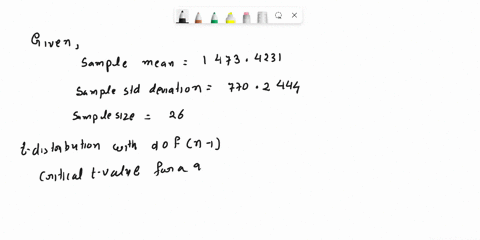 Given,
Sample mean = 1 473.4231
Sample std deviation = 770.2444
Sample size = 26
t-distribution with dof (n-1)
Critical t-value for a 9